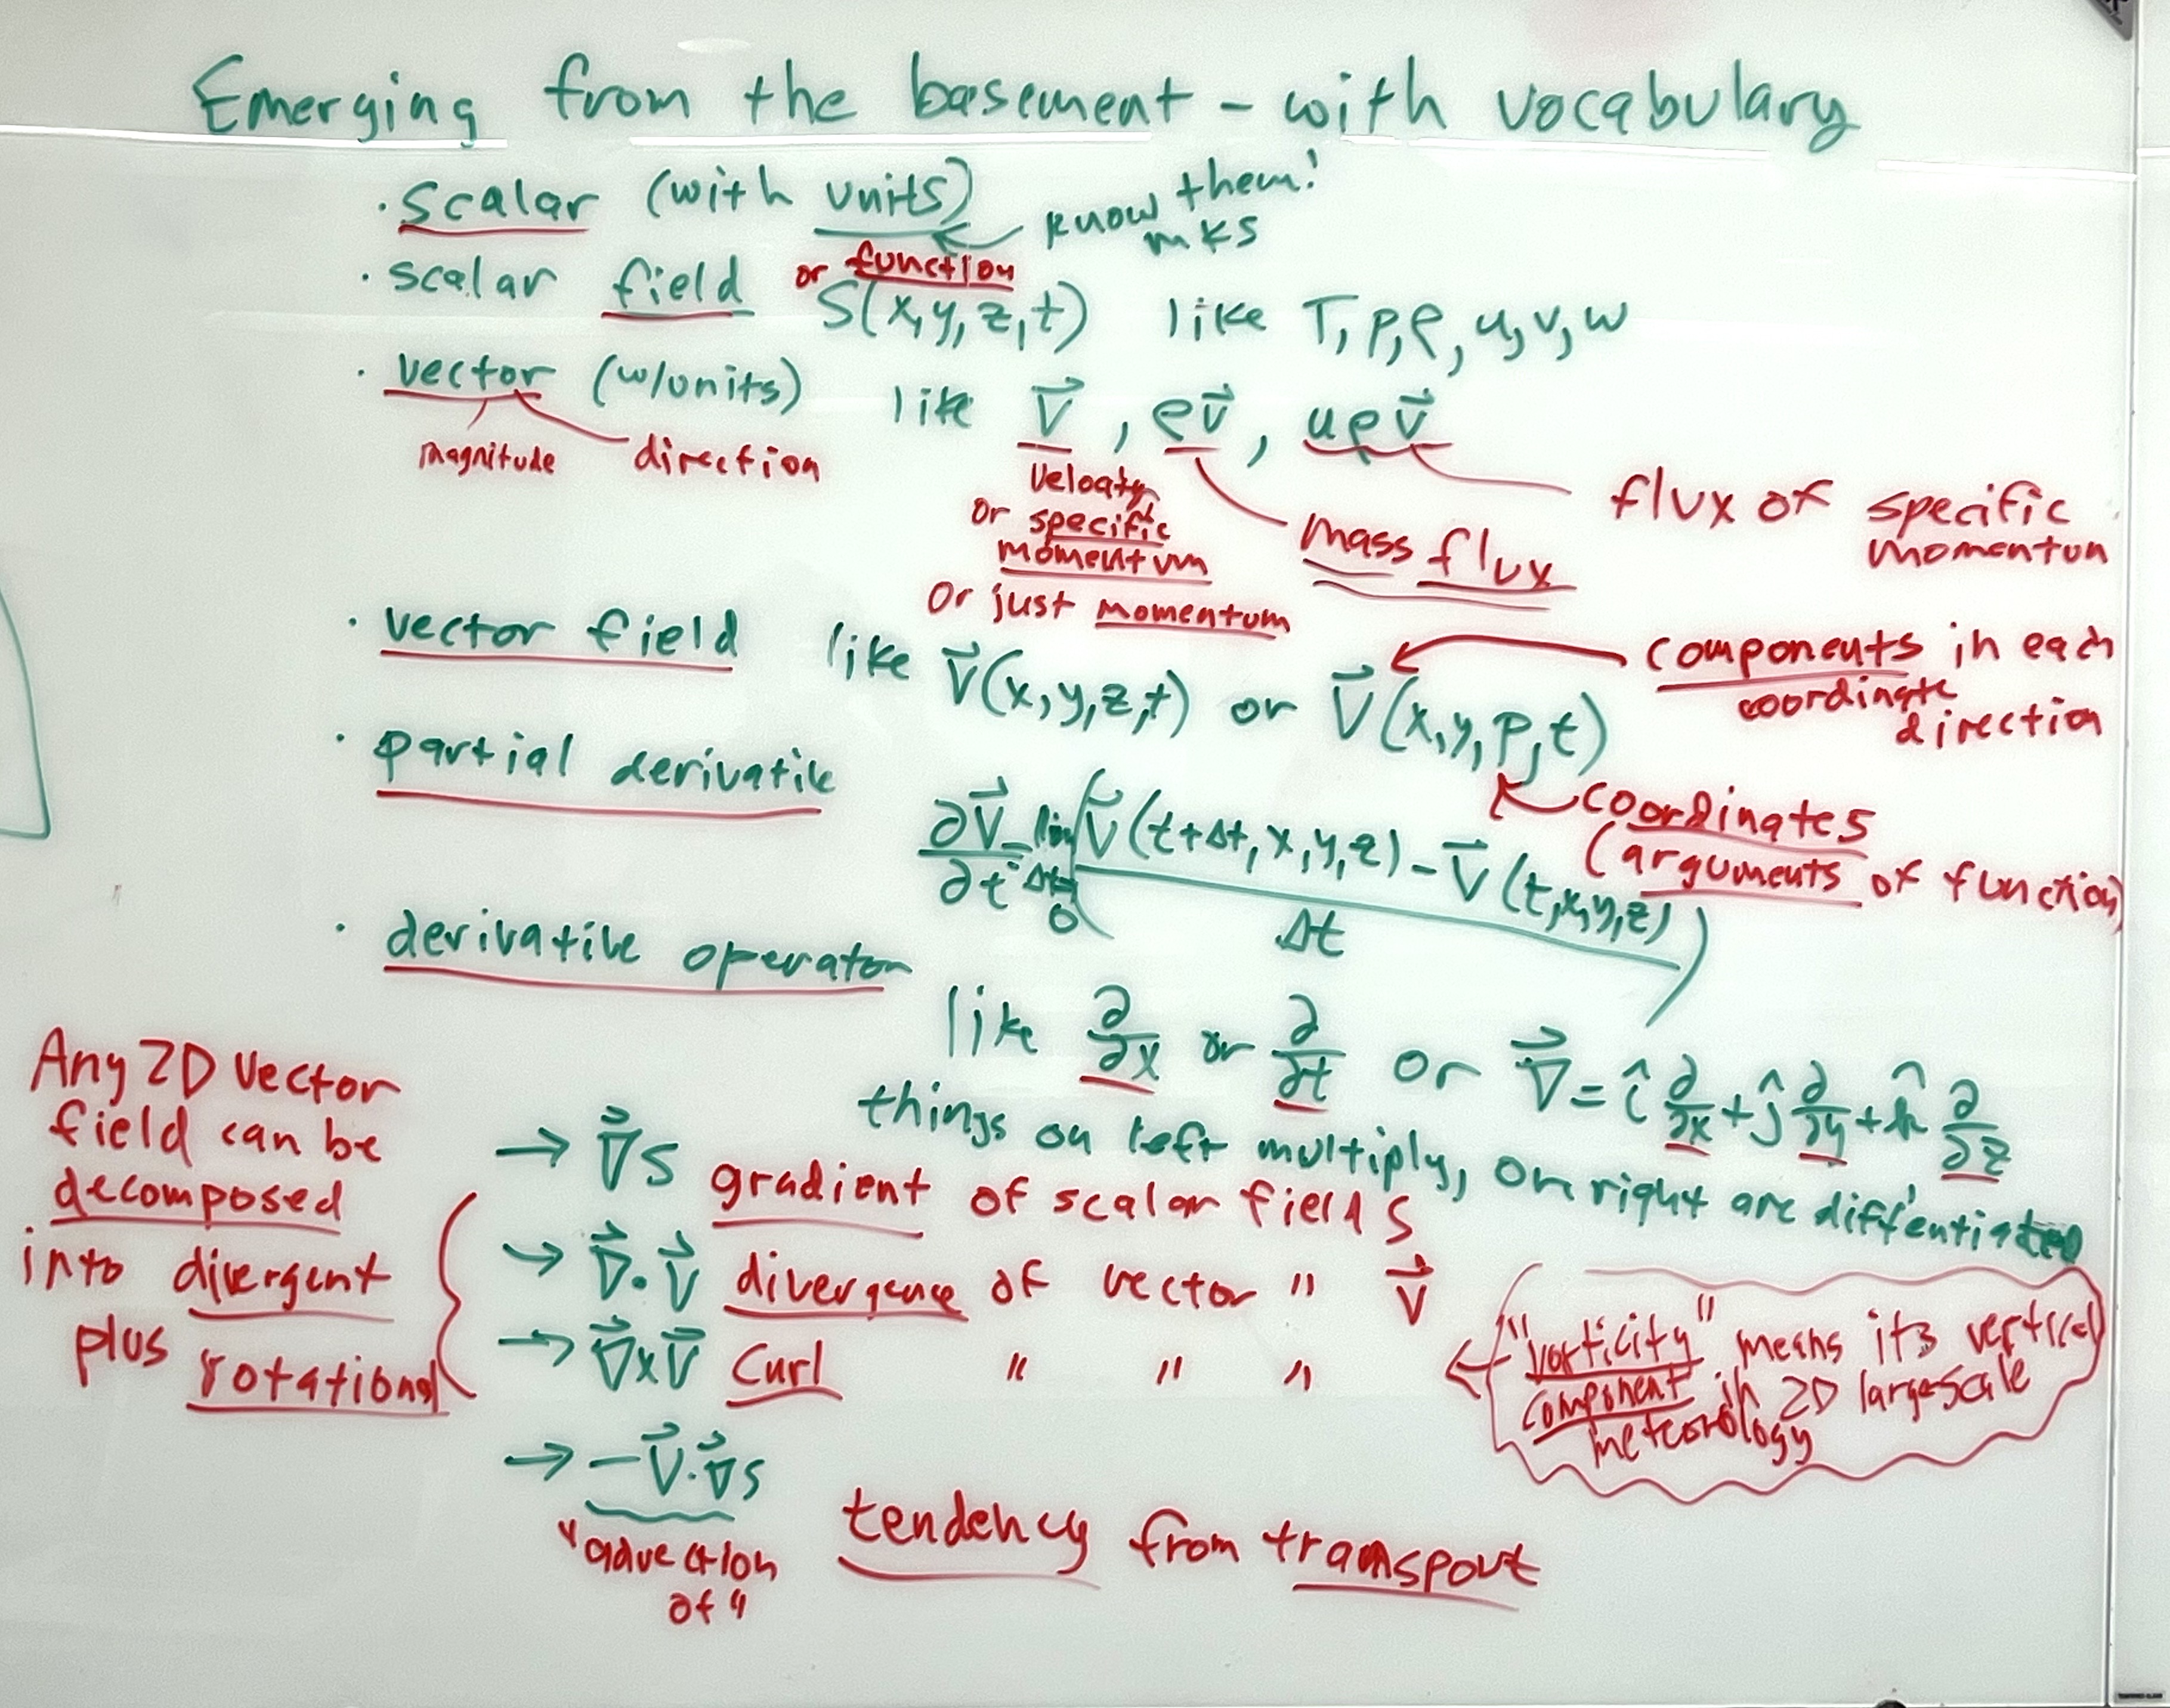 Emerging from the basement - with vocabulary
· scalar (with units) ← know them! mks
· scalar field or function S(x,y,z,t) like T, p, ρ, u, v, w
· vector (w/units) like V⃗, ρv⃗, uρv⃗
magnitude direction
Velocity or specific momentum or just momentum
mass flux
flux of specific momentum
· vector field like V⃗(x,y,z,t) or V⃗(x,y,p,t)
components in each coordinate direction
coordinates (arguments of function)
· partial derivative
∂V⃗/∂t = lim Δt→0 (V⃗(t+Δt,x,y,z) - V⃗(t,x,y,z) / Δt)
· derivative operator
like ∂/∂x or ∂/∂t or ∇⃗ = î ∂/∂x + ĵ ∂/∂y + k̂ ∂/∂z
things on left multiply, on right are diff'entiated
Any 2D vector
field can be
decomposed
into divergent
plus rotational
→ ∇⃗s gradient of scalar field S
→ ∇⃗·V⃗ divergence of vector " V⃗
→ ∇⃗×V⃗ Curl " " "
← "vorticity" means its vertical
component in 2D large-scale
meteorology
→ -V⃗·∇⃗s
"advection
of"
tendency from transport